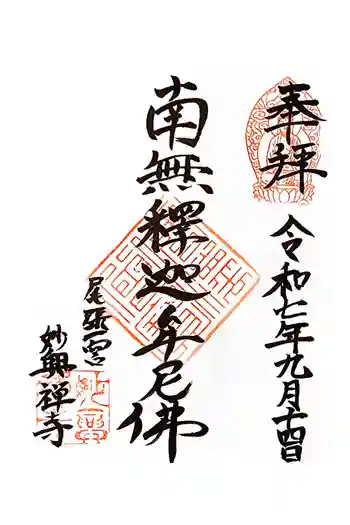 奉拜
令和七年九月十四日
南無釋迦牟尼佛
尾張一宮
妙興禅寺